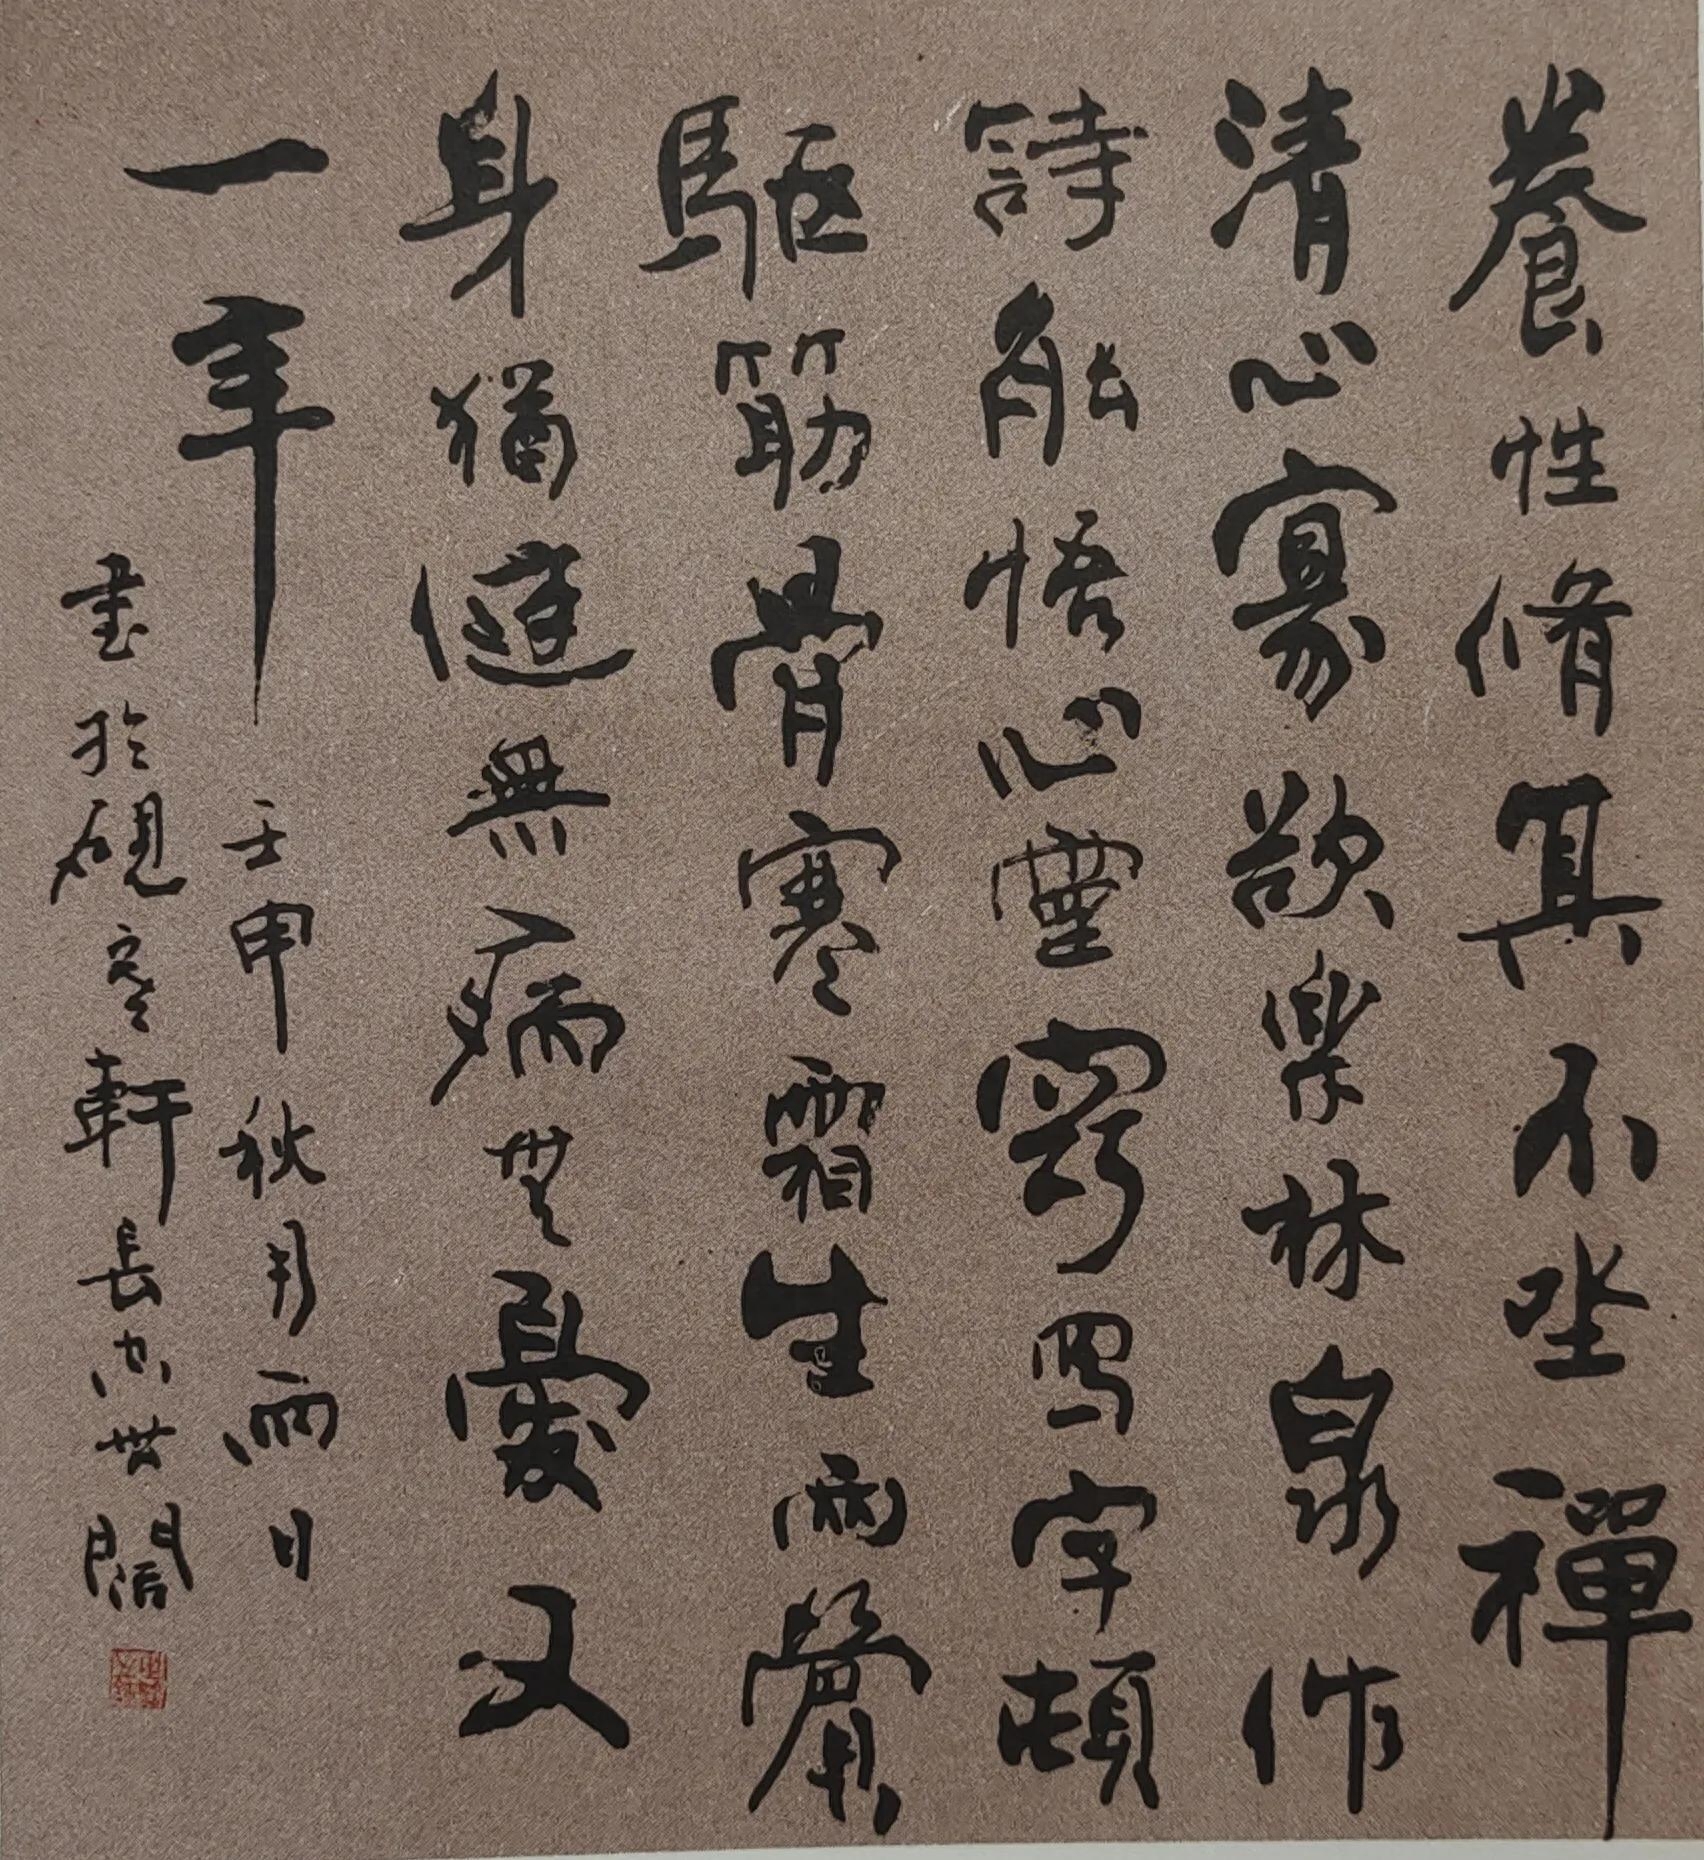 養性脩真不坐禪
清心寡欲樂林泉作
詩能悟心靈竅写字頓
驅筋骨寒霜生兩鬢
身猶健無病無憂又
一年
壬申秋月雨日
書於硯寒軒長安世闊